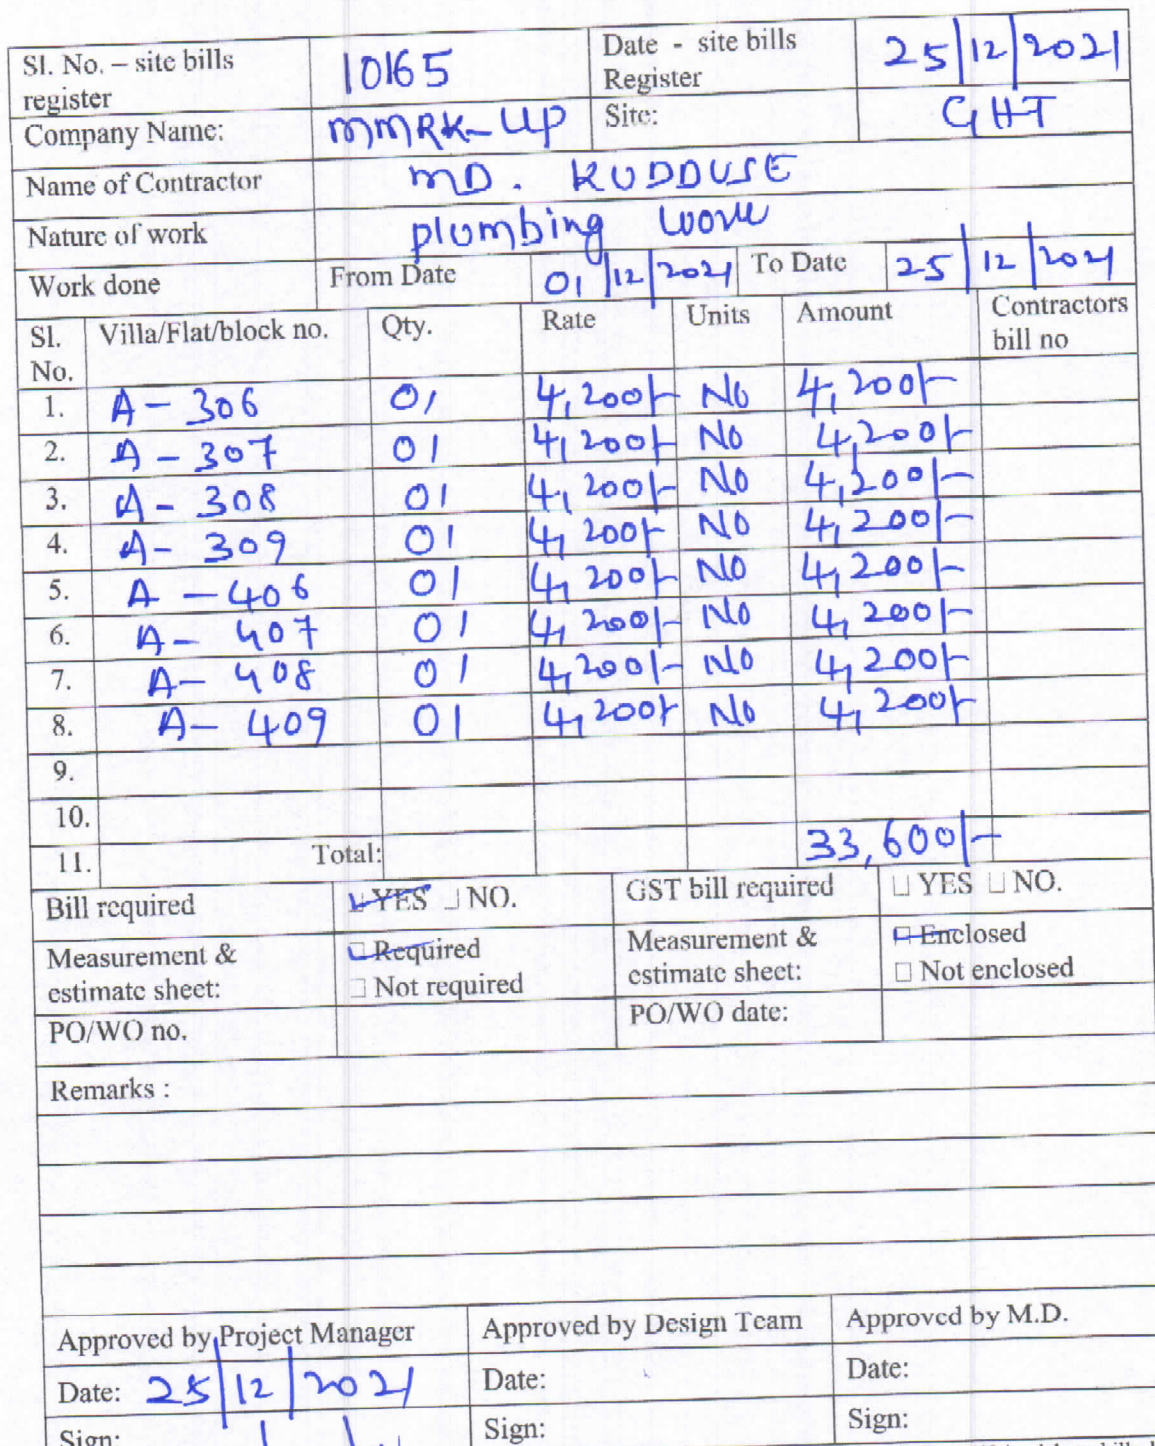 Sl. No. – site bills register 10165 Date - site bills Register 25/12/2021
Company Name: MMRK-UP Site: GHT
Name of Contractor MD. KUDDUSE
Nature of work plumbing work
Work done From Date 01/12/2021 To Date 25/12/2021
Sl. No. Villa/Flat/block no. Qty. Rate Units Amount Contractors bill no
1. A - 306 01 4,200/- No 4,200/-
2. A - 307 01 4,200/- No 4,200/-
3. A - 308 01 4,200/- No 4,200/-
4. A - 309 01 4,200/- No 4,200/-
5. A - 406 01 4,200/- No 4,200/-
6. A - 407 01 4,200/- No 4,200/-
7. A - 408 01 4,200/- No 4,200/-
8. A - 409 01 4,200/- No 4,200/-
9.
10.
11. Total: 33,600/-
Bill required YES NO. GST bill required YES NO.
Measurement & estimate sheet: Required Measurement & estimate sheet: Enclosed
Not required Not enclosed
PO/WO no. PO/WO date:
Remarks :
Approved by Project Manager Approved by Design Team Approved by M.D.
Date: 25/12/2021 Date: Date:
Sign: Sign: Sign: